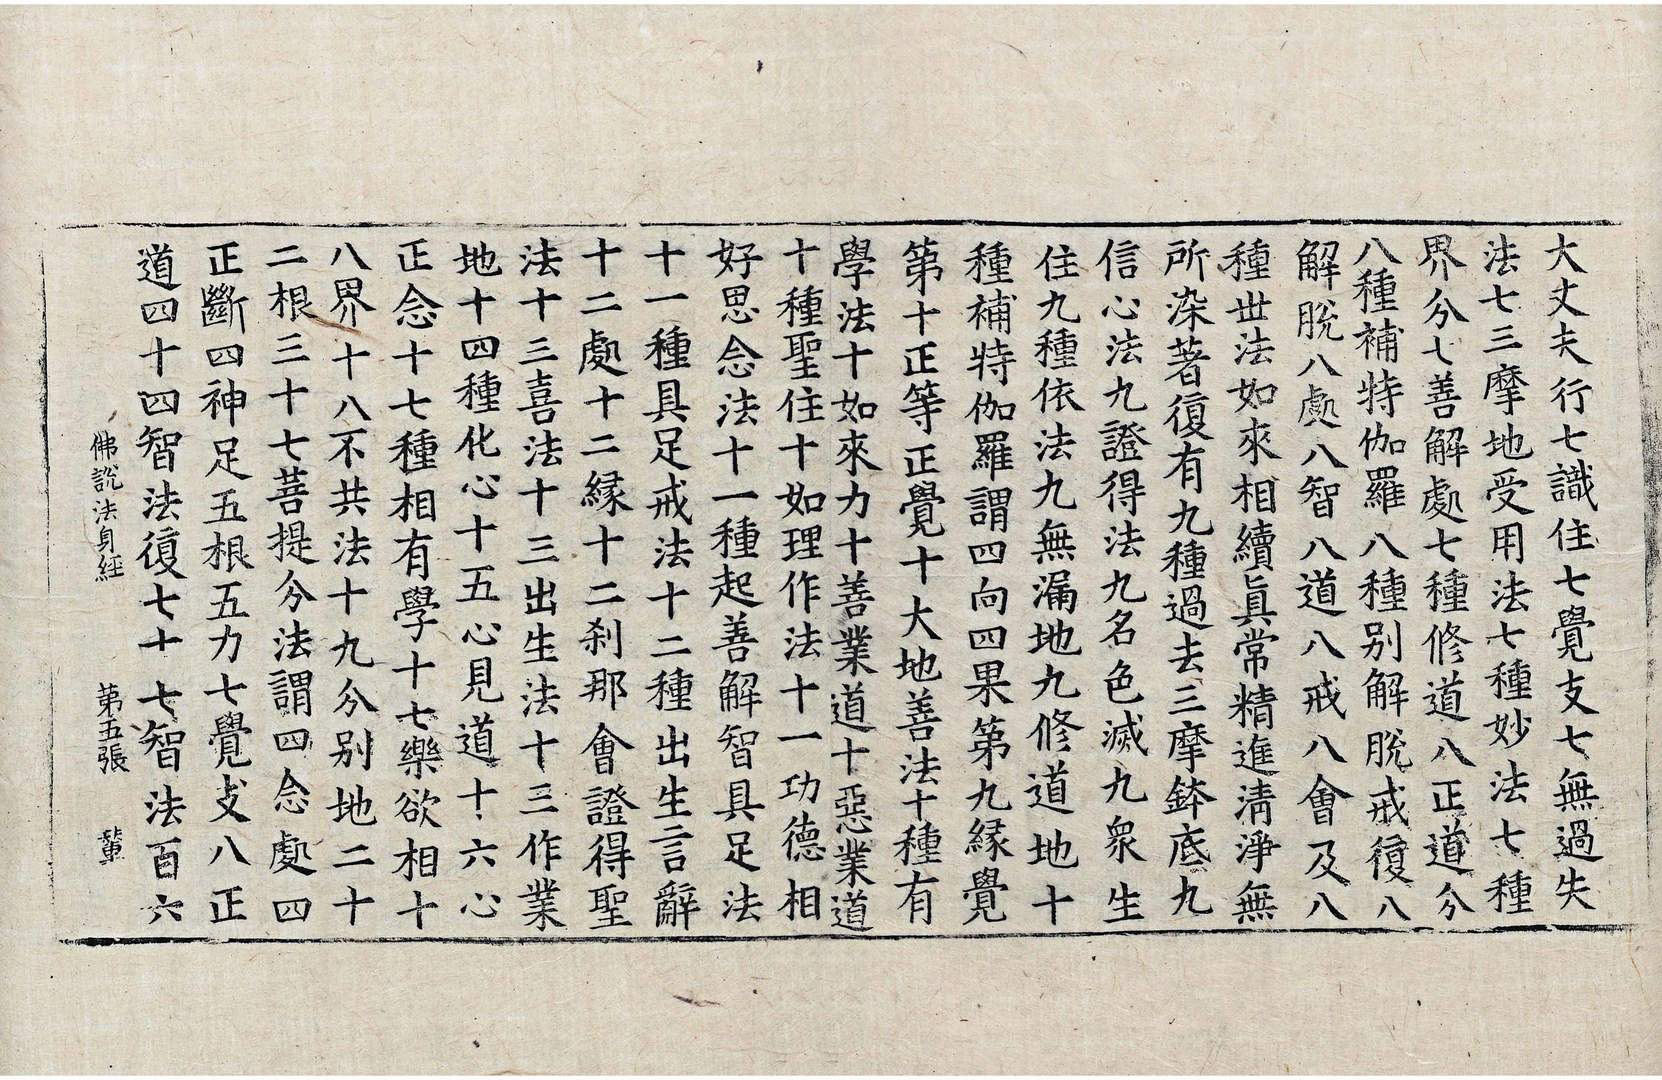 大丈夫行七識住七覺支七無過失
法七三摩地受用法七種妙法七種
界分七善解處七種修道八正道分
八種補特伽羅八種別解脫戒復八
解脫八處八智八道八戒八會及八
種世法如來相續眞常精進淸淨無
所染著復有九種過去三摩鉢底九
信心法九證得法九名色滅九衆生
住九種依法九無漏地九修道地十
種補特伽羅謂四向四果第九縁覺
第十正等正覺十大地善法十種有
學法十如來力十善業道十惡業道
十種聖住十如理作法十一功德相
好思念法十一種起善解智具足法
十一種具足戒法十二種出生言辭
十二處十二縁十二刹那會證得聖
法十三喜法十三出生法十三作業
地十四種化心十五心見道十六心
正念十七種相有學十七樂欲相十
八界十八不共法十九分別地二十
二根三十七菩提分法謂四念處四
正斷四神足五根五力七覺支八正
道四十四智法復七十七智法百六
佛說法身經 第五張 輦